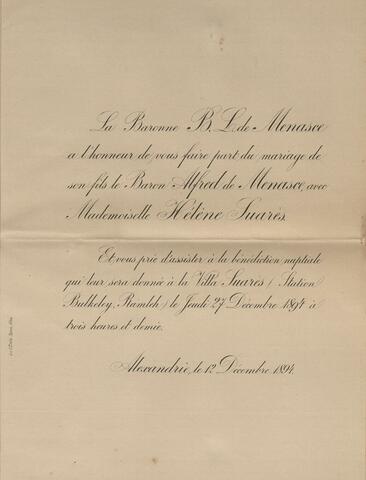 La Baronne B. L. de Menasce
a l'honneur de vous faire part du mariage de
son fils le Baron Alfred de Menasce, avec
Mademoiselle Hélène Suarès.
Et vous prie d'assister à la bénédiction nuptiale
qui leur sera donnée à la Villa Suarès (Station
Bulkeley, Ramleh) le Jeudi 27 Décembre 1894 à
trois heures et demie.
Alexandrie, le 12 Décembre 1894.